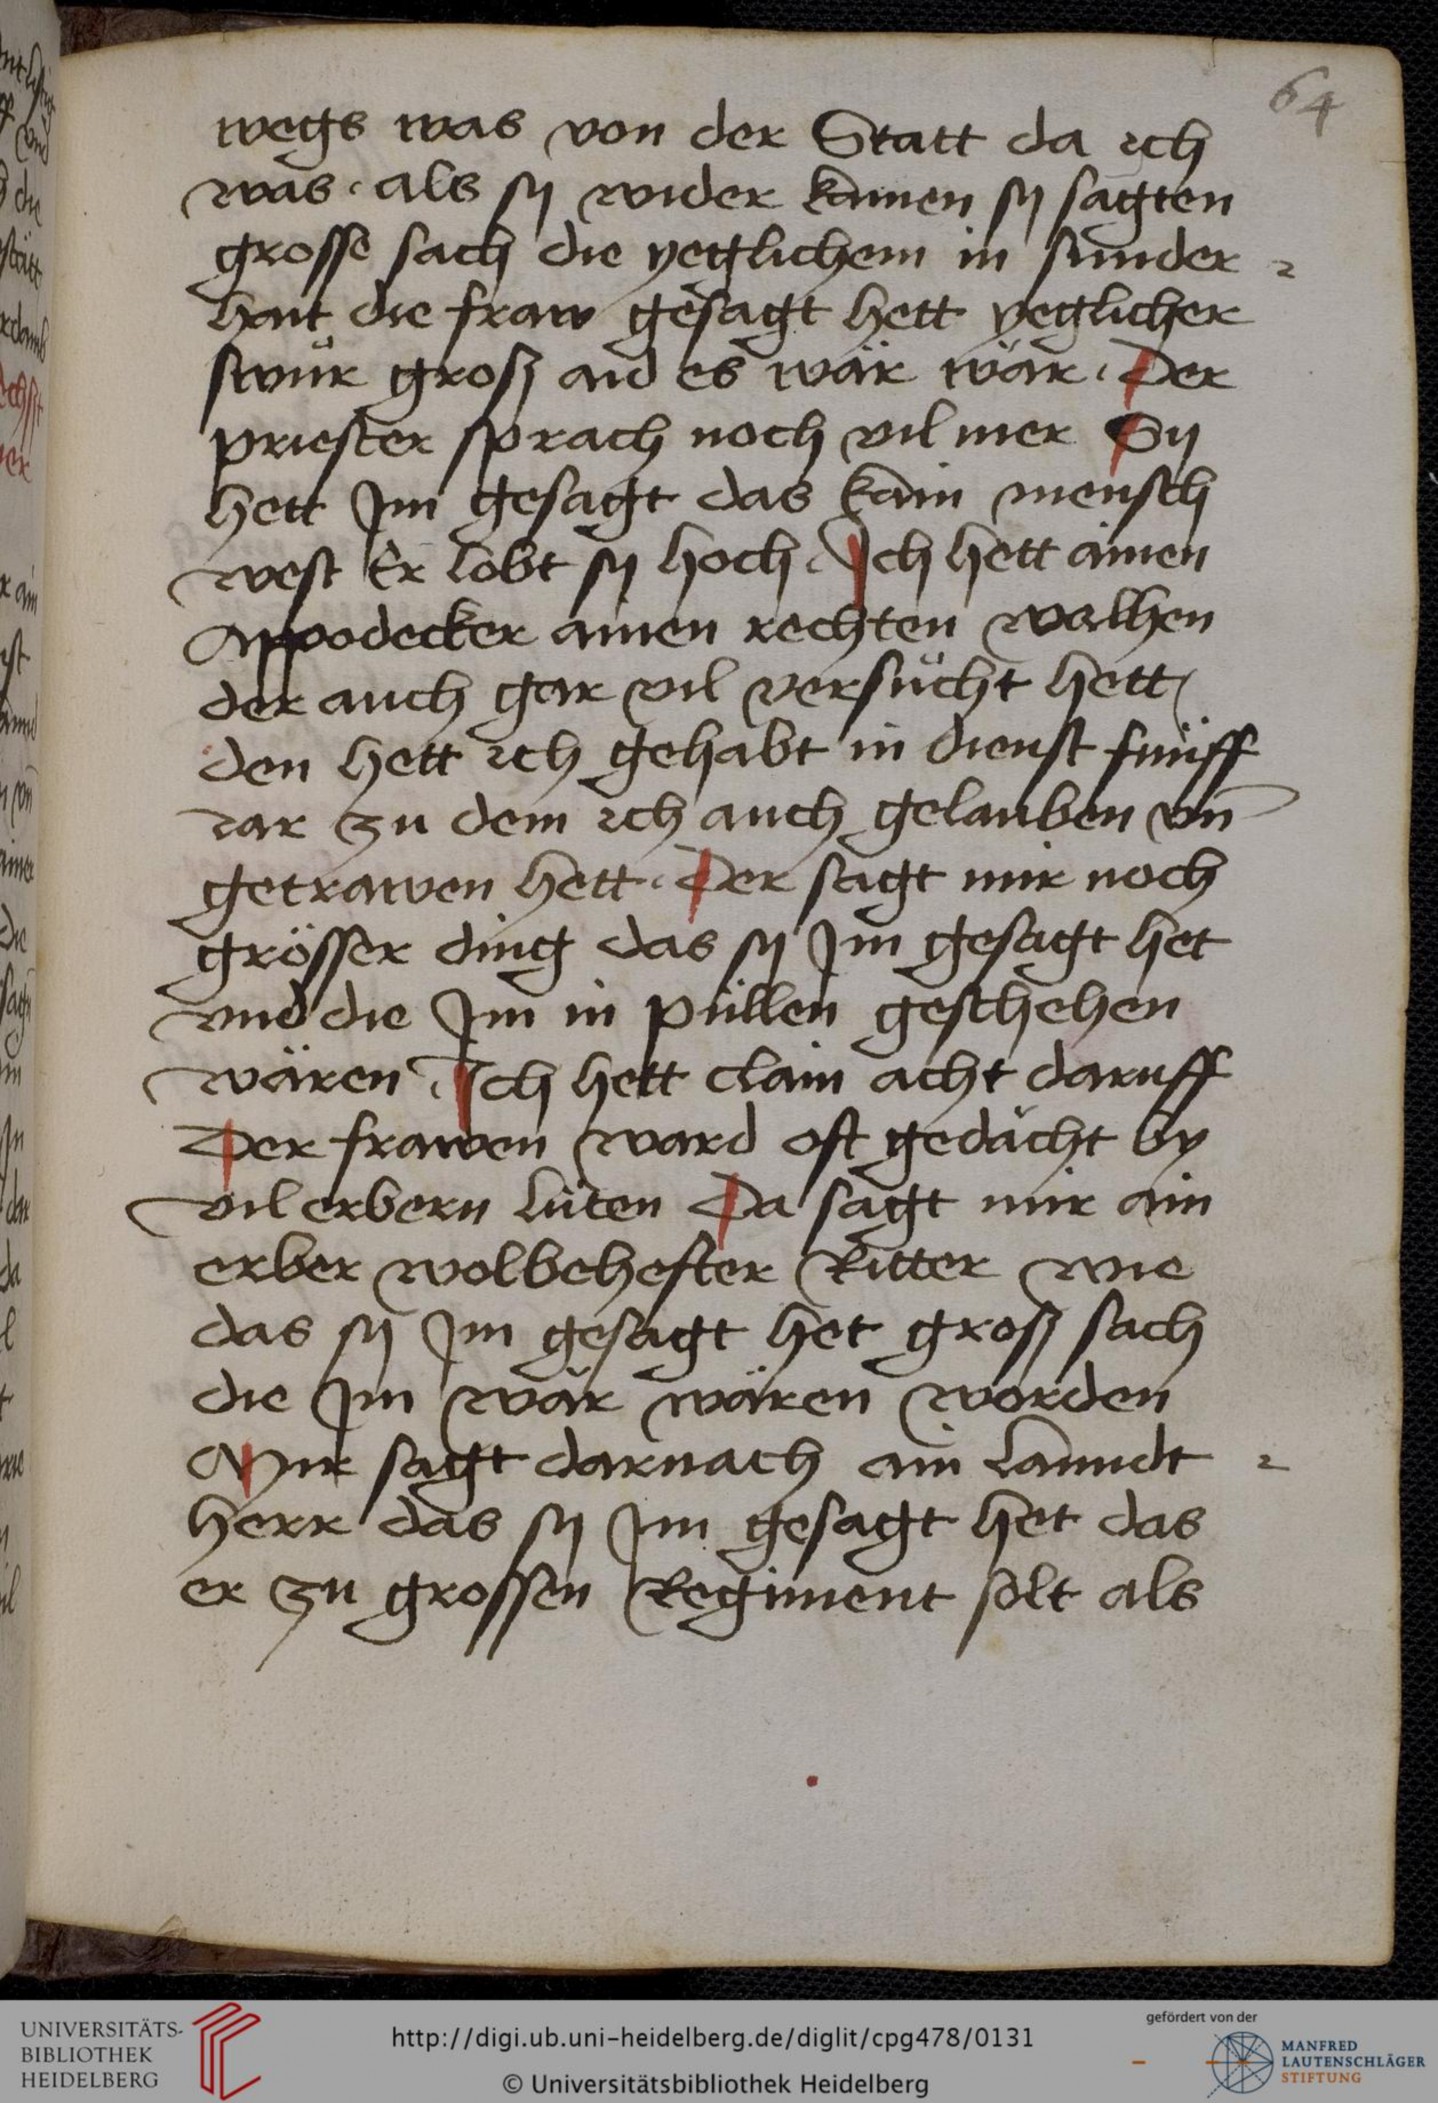 64
wegs was von der Statt da ich
was · als sy wider kamen sy sagten
grosse sach die yeglichem in sunder
hait die fraw gesagt hett yeglicher
swůr groß aid es wär wär · Der
priester sprach noch vil mer Sy
hett Im gesagt das kain mensch
west Er lobt sy hoch · Ich hett ainen
Appodecker ainen rechten walhen
der auch gar vil versůcht hett /
den hett ich gehabt in dienst fünff
iar zu dem ich auch gelauben vn̄
getrawen hett · Der sagt mir noch
grösser ding das sy Im gesagt het
vnd die Im in püllen geschehen
wären · Ich hett clain acht daruff
Der frawen ward oft gedächt by
vil erbern lüten Da sagt mir ain
erber wolbehefter Ritter wie
das sy Im gesagt het groß sach
die Im wär wären worden
Mir sagt darnach ain lanndt
herr das sy Im gesagt het das
er zu grossen Regiment solt als
UNIVERSITÄTS-
BIBLIOTHEK
HEIDELBERG
http://digi.ub.uni-heidelberg.de/diglit/cpg478/0131
© Universitätsbibliothek Heidelberg
gefördert von der
MANFRED
LAUTENSCHLÄGER
STIFTUNG